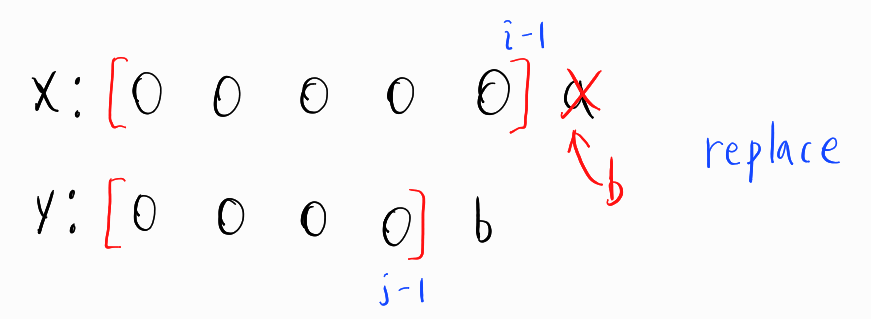 i-1
x: [0 0 0 0 0] a
b
replace
y: [0 0 0 0] b
j-1